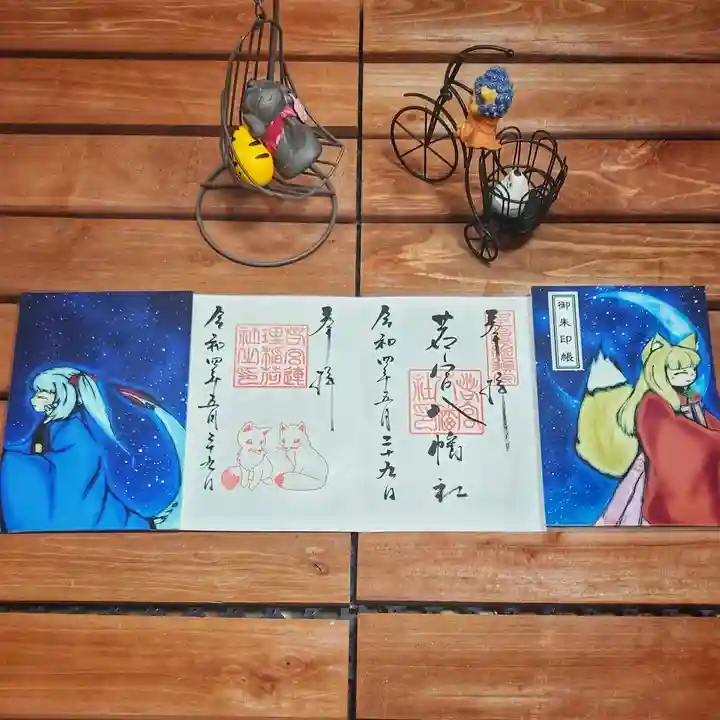 御朱印帳
奉拝
若宮八幡社
令和四年五月二十九日
奉拝
令和四年五月二十九日